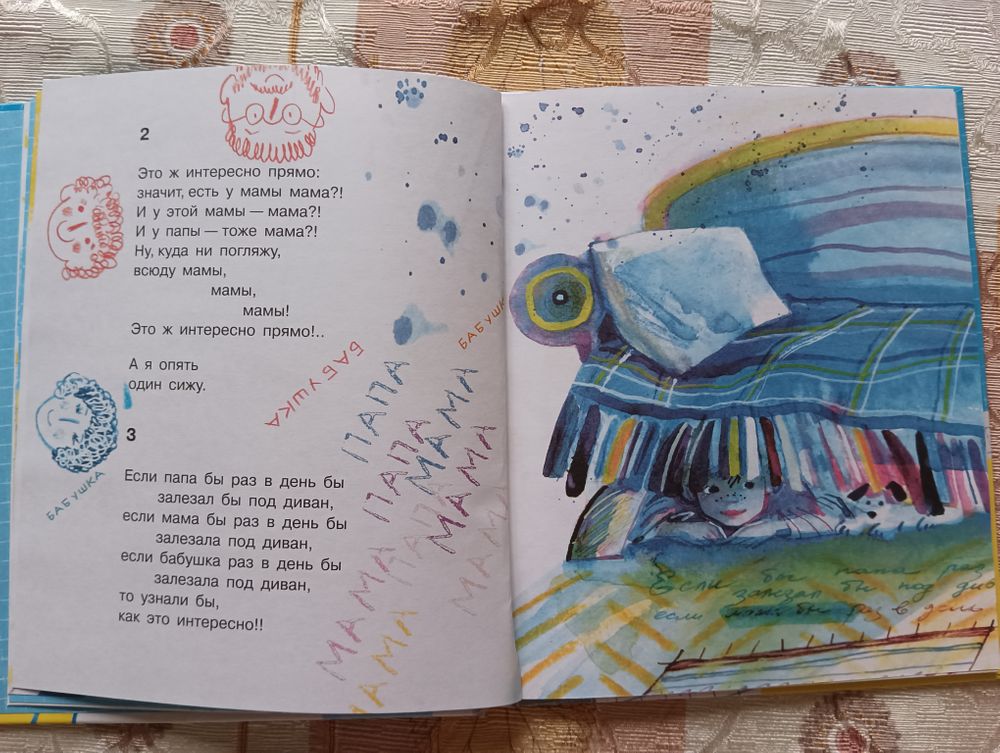 2
Это ж интересно прямо:
значит, есть у мамы мама?!
И у этой мамы — мама?!
И у папы — тоже мама?!
Ну, куда ни погляжу,
всюду мамы,
мамы,
мамы!
Это ж интересно прямо!..
А я опять
один сижу.
3
Если папа бы раз в день бы
залезал бы под диван,
если мама бы раз в день бы
залезала под диван,
если бабушка раз в день бы
залезала под диван,
то узнали бы,
как это интересно!!
БАБУШКА
БАБУШКА
БАБУШК
ПАПА
МАМА
ПАПА
МАМА
МАМА
МАМА
Если бы папа раз
залезал бы под див
если мама бы раз в день